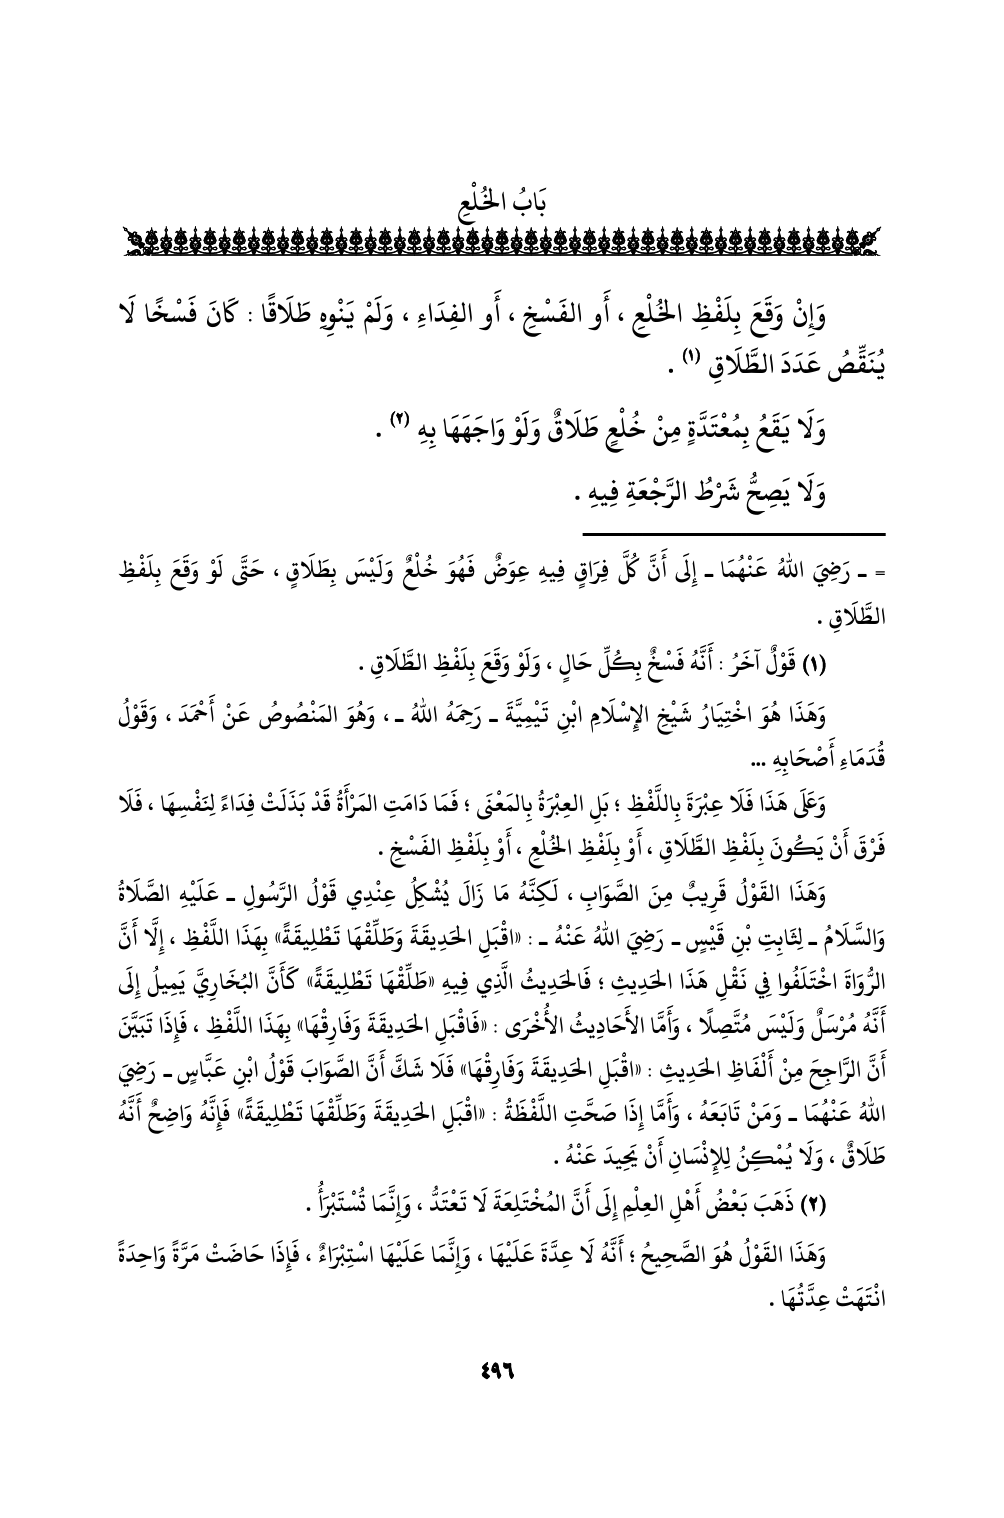 بَابُ الخُلْعِ
وَإِنْ وَقَعَ بِلَفْظِ الخُلْعِ ، أَو الفَسْخِ ، أَو الفِدَاءِ ، وَلَمْ يَنْوِهِ طَلَاقًا : كَانَ فَسْخًا لَا
يُنَقِّصُ عَدَدَ الطَّلَاقِ (١) .
وَلَا يَقَعُ بِمُعْتَدَّةٍ مِنْ خُلْعٍ طَلَاقٌ وَلَوْ وَاجَهَهَا بِهِ (٢) .
وَلَا يَصِحُّ شَرْطُ الرَّجْعَةِ فِيهِ .
= ـ رَضِيَ اللهُ عَنْهُمَا ـ إِلَى أَنَّ كُلَّ فِرَاقٍ فِيهِ عِوَضٌ فَهُوَ خُلْعٌ وَلَيْسَ بِطَلَاقٍ ، حَتَّى لَوْ وَقَعَ بِلَفْظِ
الطَّلَاقِ .
(١) قَوْلٌ آخَرُ : أَنَّهُ فَسْخٌ بِكُلِّ حَالٍ ، وَلَوْ وَقَعَ بِلَفْظِ الطَّلَاقِ .
وَهَذَا هُوَ اخْتِيَارُ شَيْخِ الإِسْلَامِ ابْنِ تَيْمِيَّةَ ـ رَحِمَهُ اللهُ ـ ، وَهُوَ المَنْصُوصُ عَنْ أَحْمَدَ ، وَقَوْلُ
قُدَمَاءِ أَصْحَابِهِ ...
وَعَلَى هَذَا فَلَا عِبْرَةَ بِاللَّفْظِ ؛ بَلِ العِبْرَةُ بِالمَعْنَى ؛ فَمَا دَامَتِ المَرْأَةُ قَدْ بَذَلَتْ فِدَاءً لِنَفْسِهَا ، فَلَا
فَرْقَ أَنْ يَكُونَ بِلَفْظِ الطَّلَاقِ ، أَوْ بِلَفْظِ الخُلْعِ ، أَوْ بِلَفْظِ الفَسْخِ .
وَهَذَا القَوْلُ قَرِيبٌ مِنَ الصَّوَابِ ، لَكِنَّهُ مَا زَالَ يُشْكِلُ عِنْدِي قَوْلُ الرَّسُولِ ـ عَلَيْهِ الصَّلَاةُ
وَالسَّلَامُ ـ لِثَابِتِ بْنِ قَيْسٍ ـ رَضِيَ اللهُ عَنْهُ ـ : «اقْبَلِ الحَدِيقَةَ وَطَلِّقْهَا تَطْلِيقَةً» بِهَذَا اللَّفْظِ ، إِلَّا أَنَّ
الرُّوَاةَ اخْتَلَفُوا فِي نَقْلِ هَذَا الحَدِيثِ ؛ فَالحَدِيثُ الَّذِي فِيهِ «طَلِّقْهَا تَطْلِيقَةً» كَأَنَّ البُخَارِيَّ يَمِيلُ إِلَى
أَنَّهُ مُرْسَلٌ وَلَيْسَ مُتَّصِلًا ، وَأَمَّا الأَحَادِيثُ الأُخْرَى : «فَاقْبَلِ الحَدِيقَةَ وَفَارِقْهَا» بِهَذَا اللَّفْظِ ، فَإِذَا تَبَيَّنَ
أَنَّ الرَّاجِحَ مِنْ أَلْفَاظِ الحَدِيثِ : «اقْبَلِ الحَدِيقَةَ وَفَارِقْهَا» فَلَا شَكَّ أَنَّ الصَّوَابَ قَوْلُ ابْنِ عَبَّاسٍ ـ رَضِيَ
اللهُ عَنْهُمَا ـ وَمَنْ تَابَعَهُ ، وَأَمَّا إِذَا صَحَّتِ اللَّفْظَةُ : «اقْبَلِ الحَدِيقَةَ وَطَلِّقْهَا تَطْلِيقَةً» فَإِنَّهُ وَاضِحٌ أَنَّهُ
طَلَاقٌ ، وَلَا يُمْكِنُ لِلإِنْسَانِ أَنْ يَحِيدَ عَنْهُ .
(٢) ذَهَبَ بَعْضُ أَهْلِ العِلْمِ إِلَى أَنَّ المُخْتَلِعَةَ لَا تَعْتَدُّ ، وَإِنَّمَا تُسْتَبْرَأُ .
وَهَذَا القَوْلُ هُوَ الصَّحِيحُ ؛ أَنَّهُ لَا عِدَّةَ عَلَيْهَا ، وَإِنَّمَا عَلَيْهَا اسْتِبْرَاءٌ ، فَإِذَا حَاضَتْ مَرَّةً وَاحِدَةً
انْتَهَتْ عِدَّتُهَا .
٤٩٦